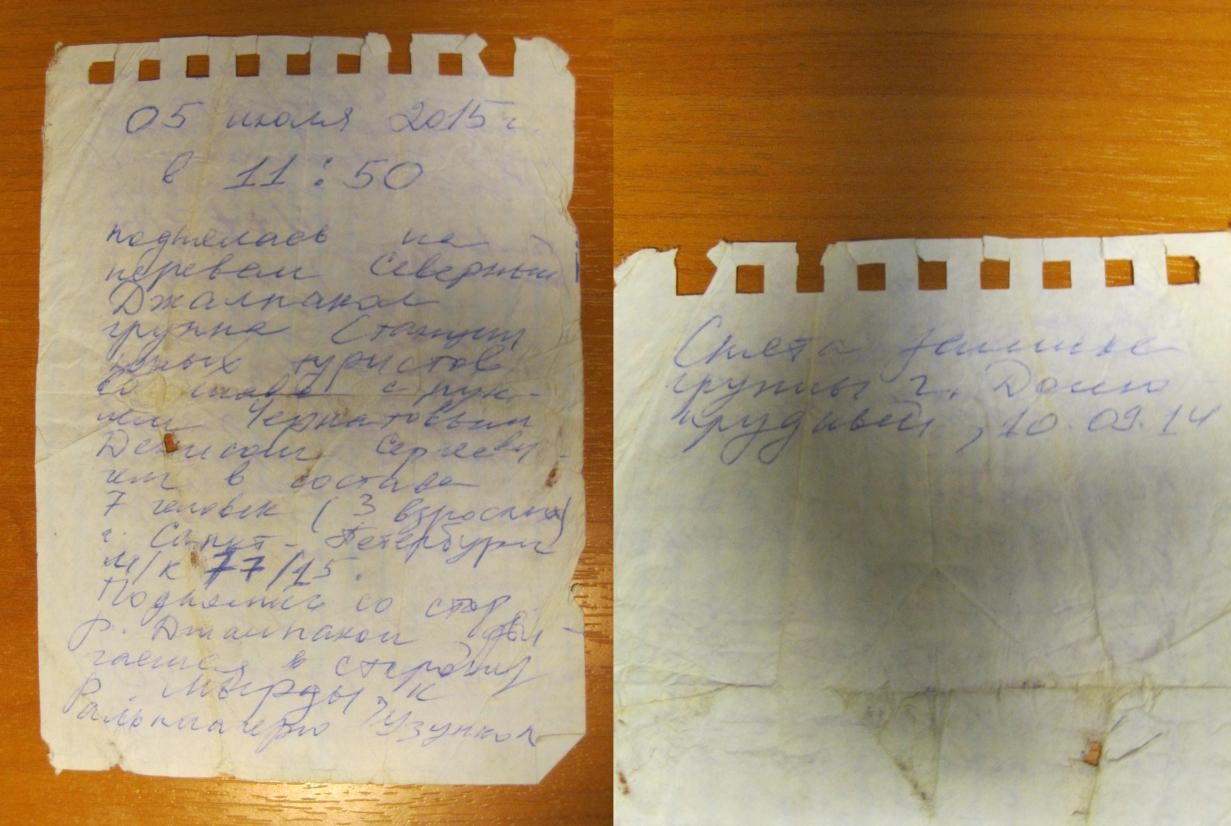 05 июля 2015 г.
в 11:50
поднялась на
перевал Северный
Джалпакол
группа Станции
юных туристов
во главе с рук-
лем Черматовым
Денисом Сергееви-
чем в составе
7 человек (3 взрослых)
г. Санкт-Петербург
м/к 77/15.
Поднялись со стор
р. Джалпакол дви-
гаемся в сторону
р. Мырды, к
альплагерю Узункол
Снята записка
группы г. Долго
прудный, 10.09.14